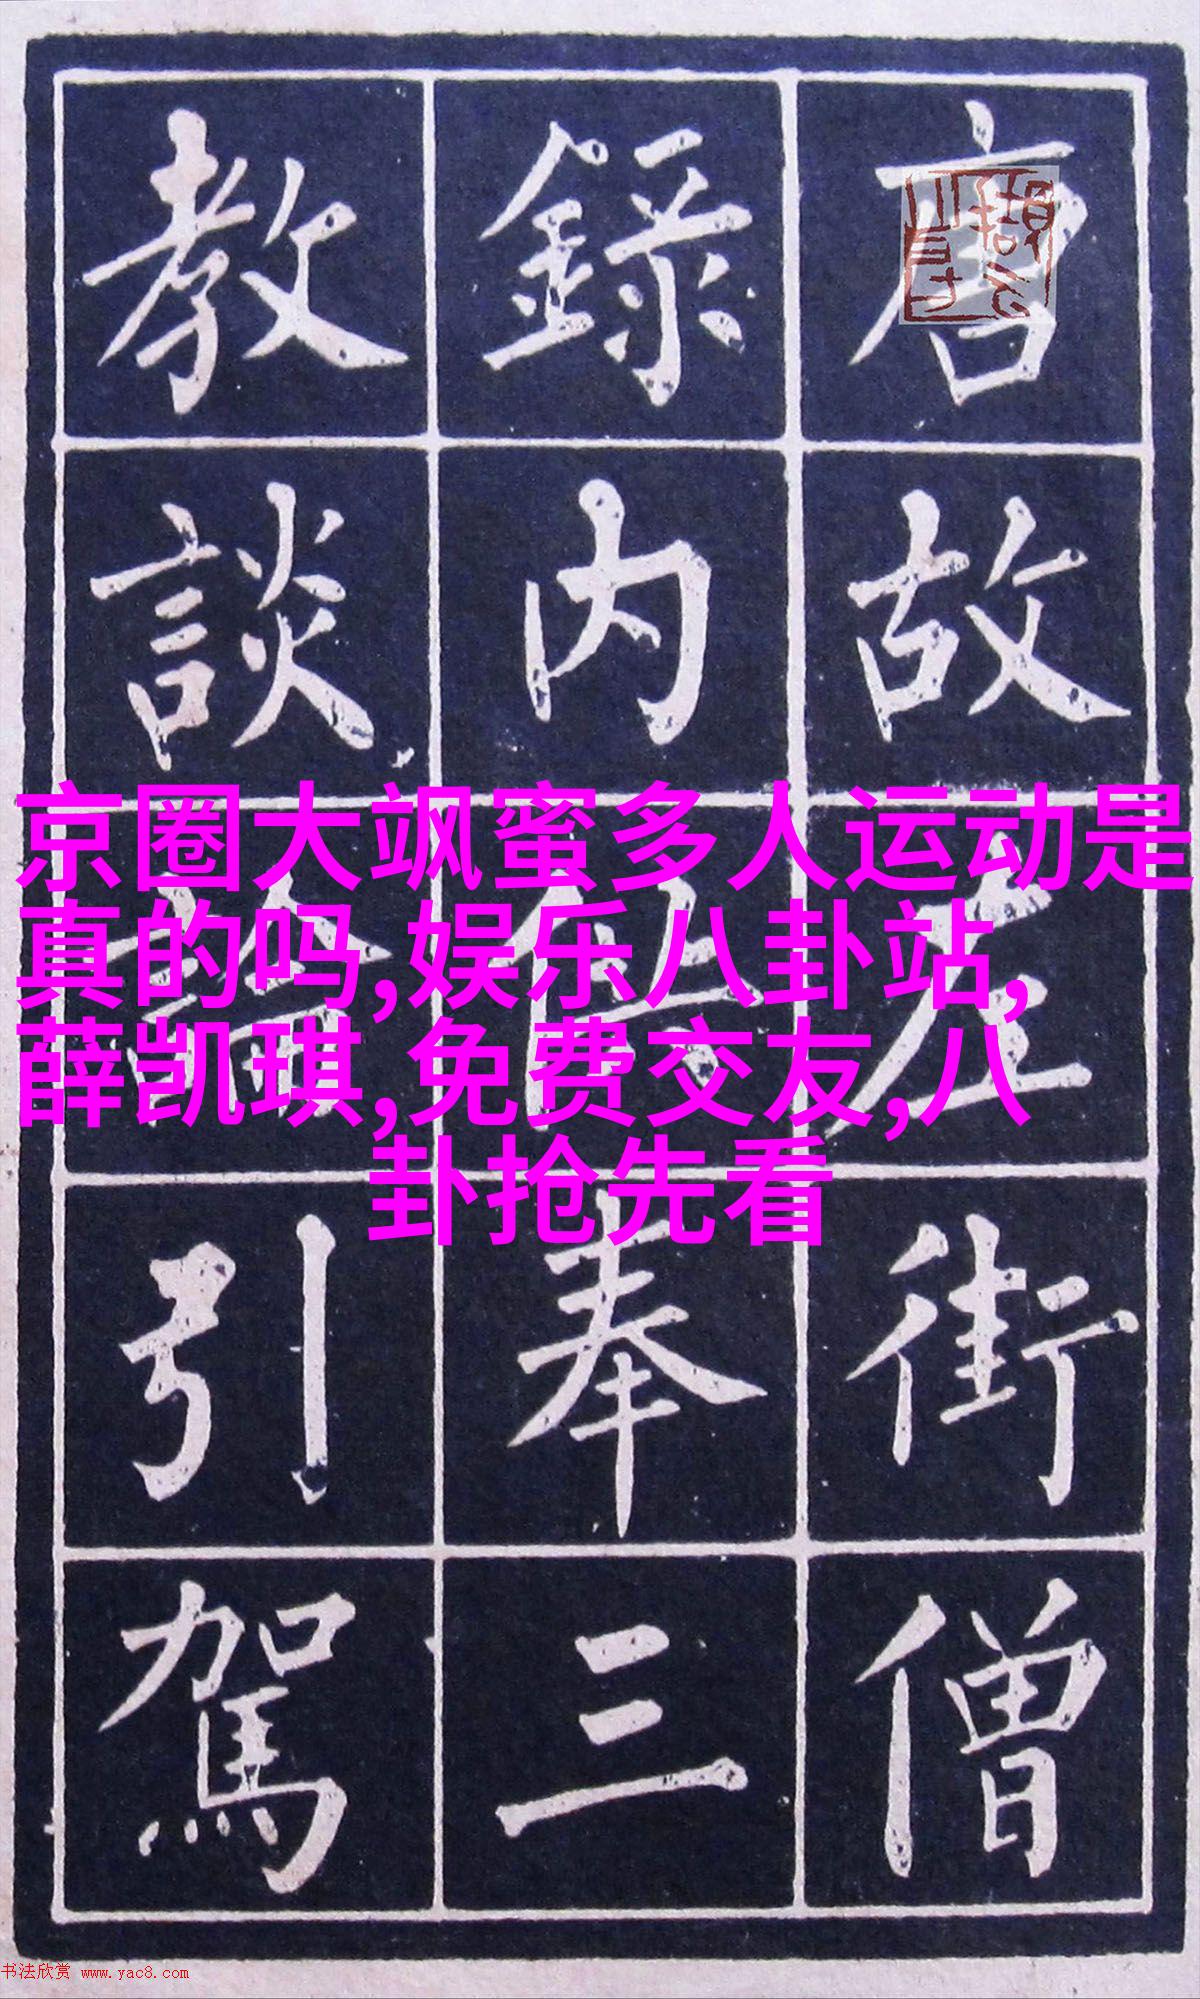 唐故左街僧
錄內供奉三
教談論引駕
京圈大飒蜜多人运动是
真的吗,娱乐八卦站,
薛凯琪,免费交友,八
卦抢先看
书法欣赏 www.yac8.com